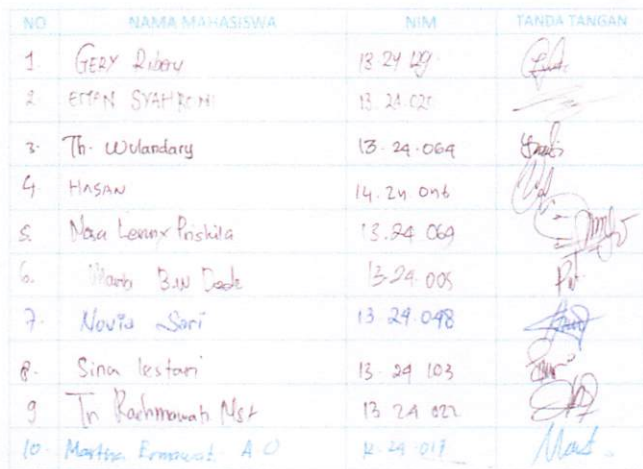 NO NAMA MAHASISWA NIM TANDA TANGAN
1. GERY Ribery 13.24 129
2. SYAHRONI 13.24.021
3. Th. Wulandary 13.24.064
4. HASAN 14.24.046
5. Priskila 13.24 069
6. 13.24.005
7. Novia Sari 13.24.048
8. Sina lestari 13.24 103
9 Tri Rachmawati Nst 13 24 022
10. Martha A.O 12.24.017